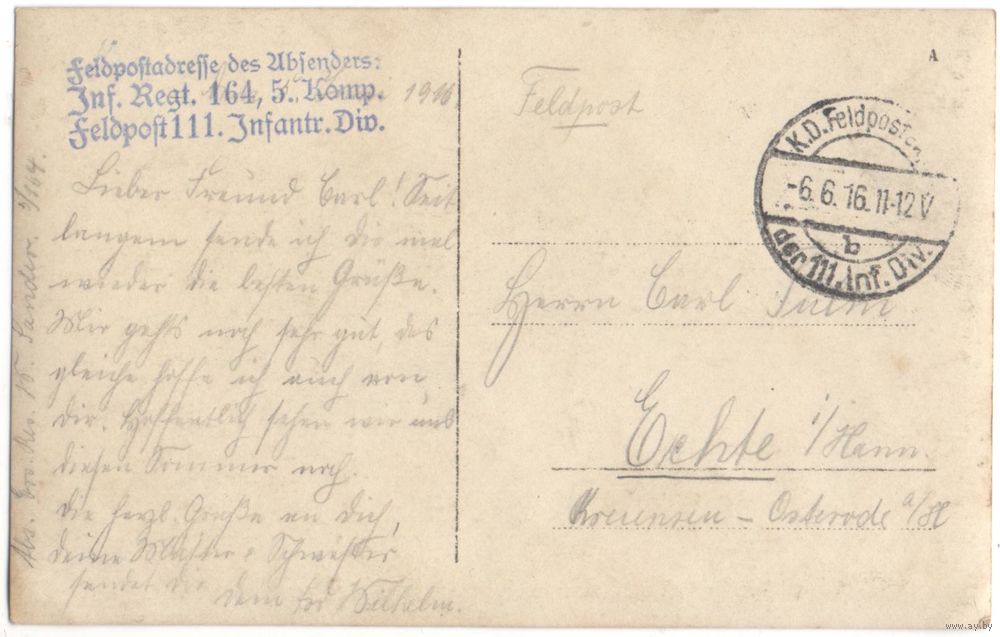 Feldpostadresse des Absenders:
Inf. Regt. 164, 5. Komp.
Feldpost 111. Infantr. Div.
1916
Lieber Freund Carl! Seit
langem sende ich Dir mal
wieder die besten Grüße.
Mir gehts noch sehr gut, das
gleiche hoffe ich auch von
Dir. Hoffentlich sehen wir uns
diesen Sommer noch.
Die herzl. Grüße an Dich,
deine Mutter & Schwester
sendet Dir
dein Wilhelm.
Abs. Res. Sander. 5/164.
A
Feldpost
K.D. Feldpost
-6.6.16.11-12V
b
der 111. Inf. Div.
Herrn Carl
Echte i/Hann.
Kreiensen - Osterode a/H
www.ay.by